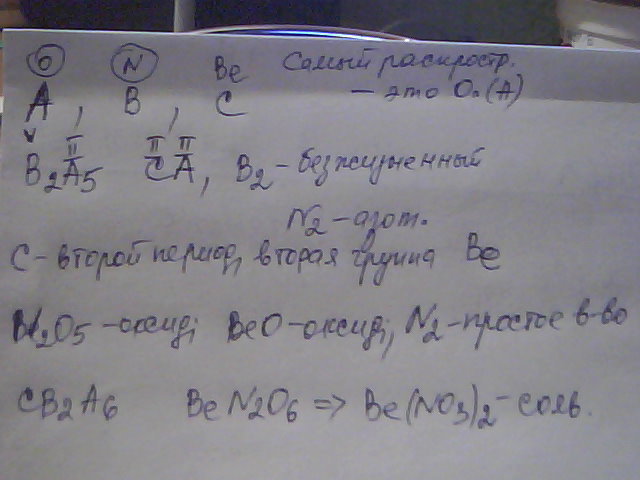 О N Be Самый распростр.
A, B, C - это O. (A)
V II II II
B2A5 CA, B2 - безжизненный
N2 - азот.
C - второй период, вторая группа Be
N2O5 - оксид; BeO - оксид; N2 - простое в-во
CB2A6 BeN2O6 => Be(NO3)2 - соль.